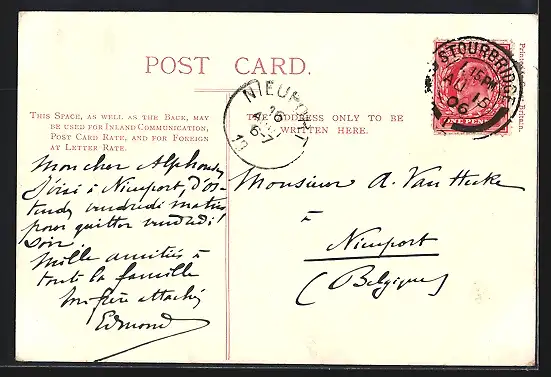 POST CARD.
THIS SPACE, AS WELL AS THE BACK, MAY
BE USED FOR INLAND COMMUNICATION,
POST CARD RATE, AND FOR FOREIGN
AT LETTER RATE.
THE ADDRESS ONLY TO BE
WRITTEN HERE.
Mon cher Alphonse,
J'irai à Nieuport, d'Os-
tende, vendredi matin
pour quitter vendredi
soir.
Mille amitiés à
toute la famille
attaché
Edmond
Monsieur A. Van Hecke
à
Nieuport
(Belgique)
NIEUPORT
STOURBRIDGE
06
ONE PENNY
Britain.